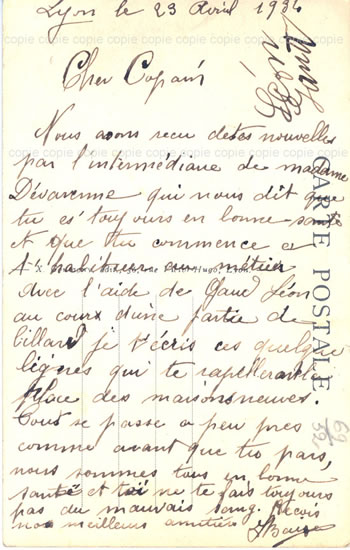 Lyon le 23 Avril 1936
Cher Copain
Nous avons recu detes nouvelles
par l'intermédiare de madame
Devarenne qui nous dit que
tu es toujours en bonne santé
et que tu commence a
t'habituer au métier
avec l'aide de Gaud Léon
au cours d'une partie de
billard je t'écris ces quelque
lignes qui te rapellerait la
place des maisonsneuves.
Tout se passe a peu pres
comme avant que tu pars,
nous sommes tous en bonne
santé et toi ne te fais toujours
pas du mauvais sang. Recois
nos meilleurs amitiés
CARTE POSTALE
69
copie copie copie copie copie copie